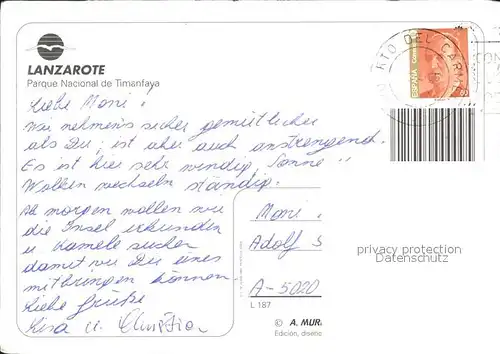 LANZAROTE
Parque Nacional de Timanfaya
Liebe Moni,
Wir nehmen's sicher gemütlicher
als Du, ist aber auch anstrengend.
Es ist hier sehr windig, Sonne "
Wolken wechseln ständig.
Ab morgen wollen wir
die Insel erkunden
u. Kamele suchen
damit wir Dir eines
mitbringen können.
Liebe Grüße
Lisa u. Christian
RTO DEL CARM
CON
ESPAÑA
Moni
Adolf S
A-5020
privacy protection
Datenschutz
L 187
© A. MUR
Edición, diseño